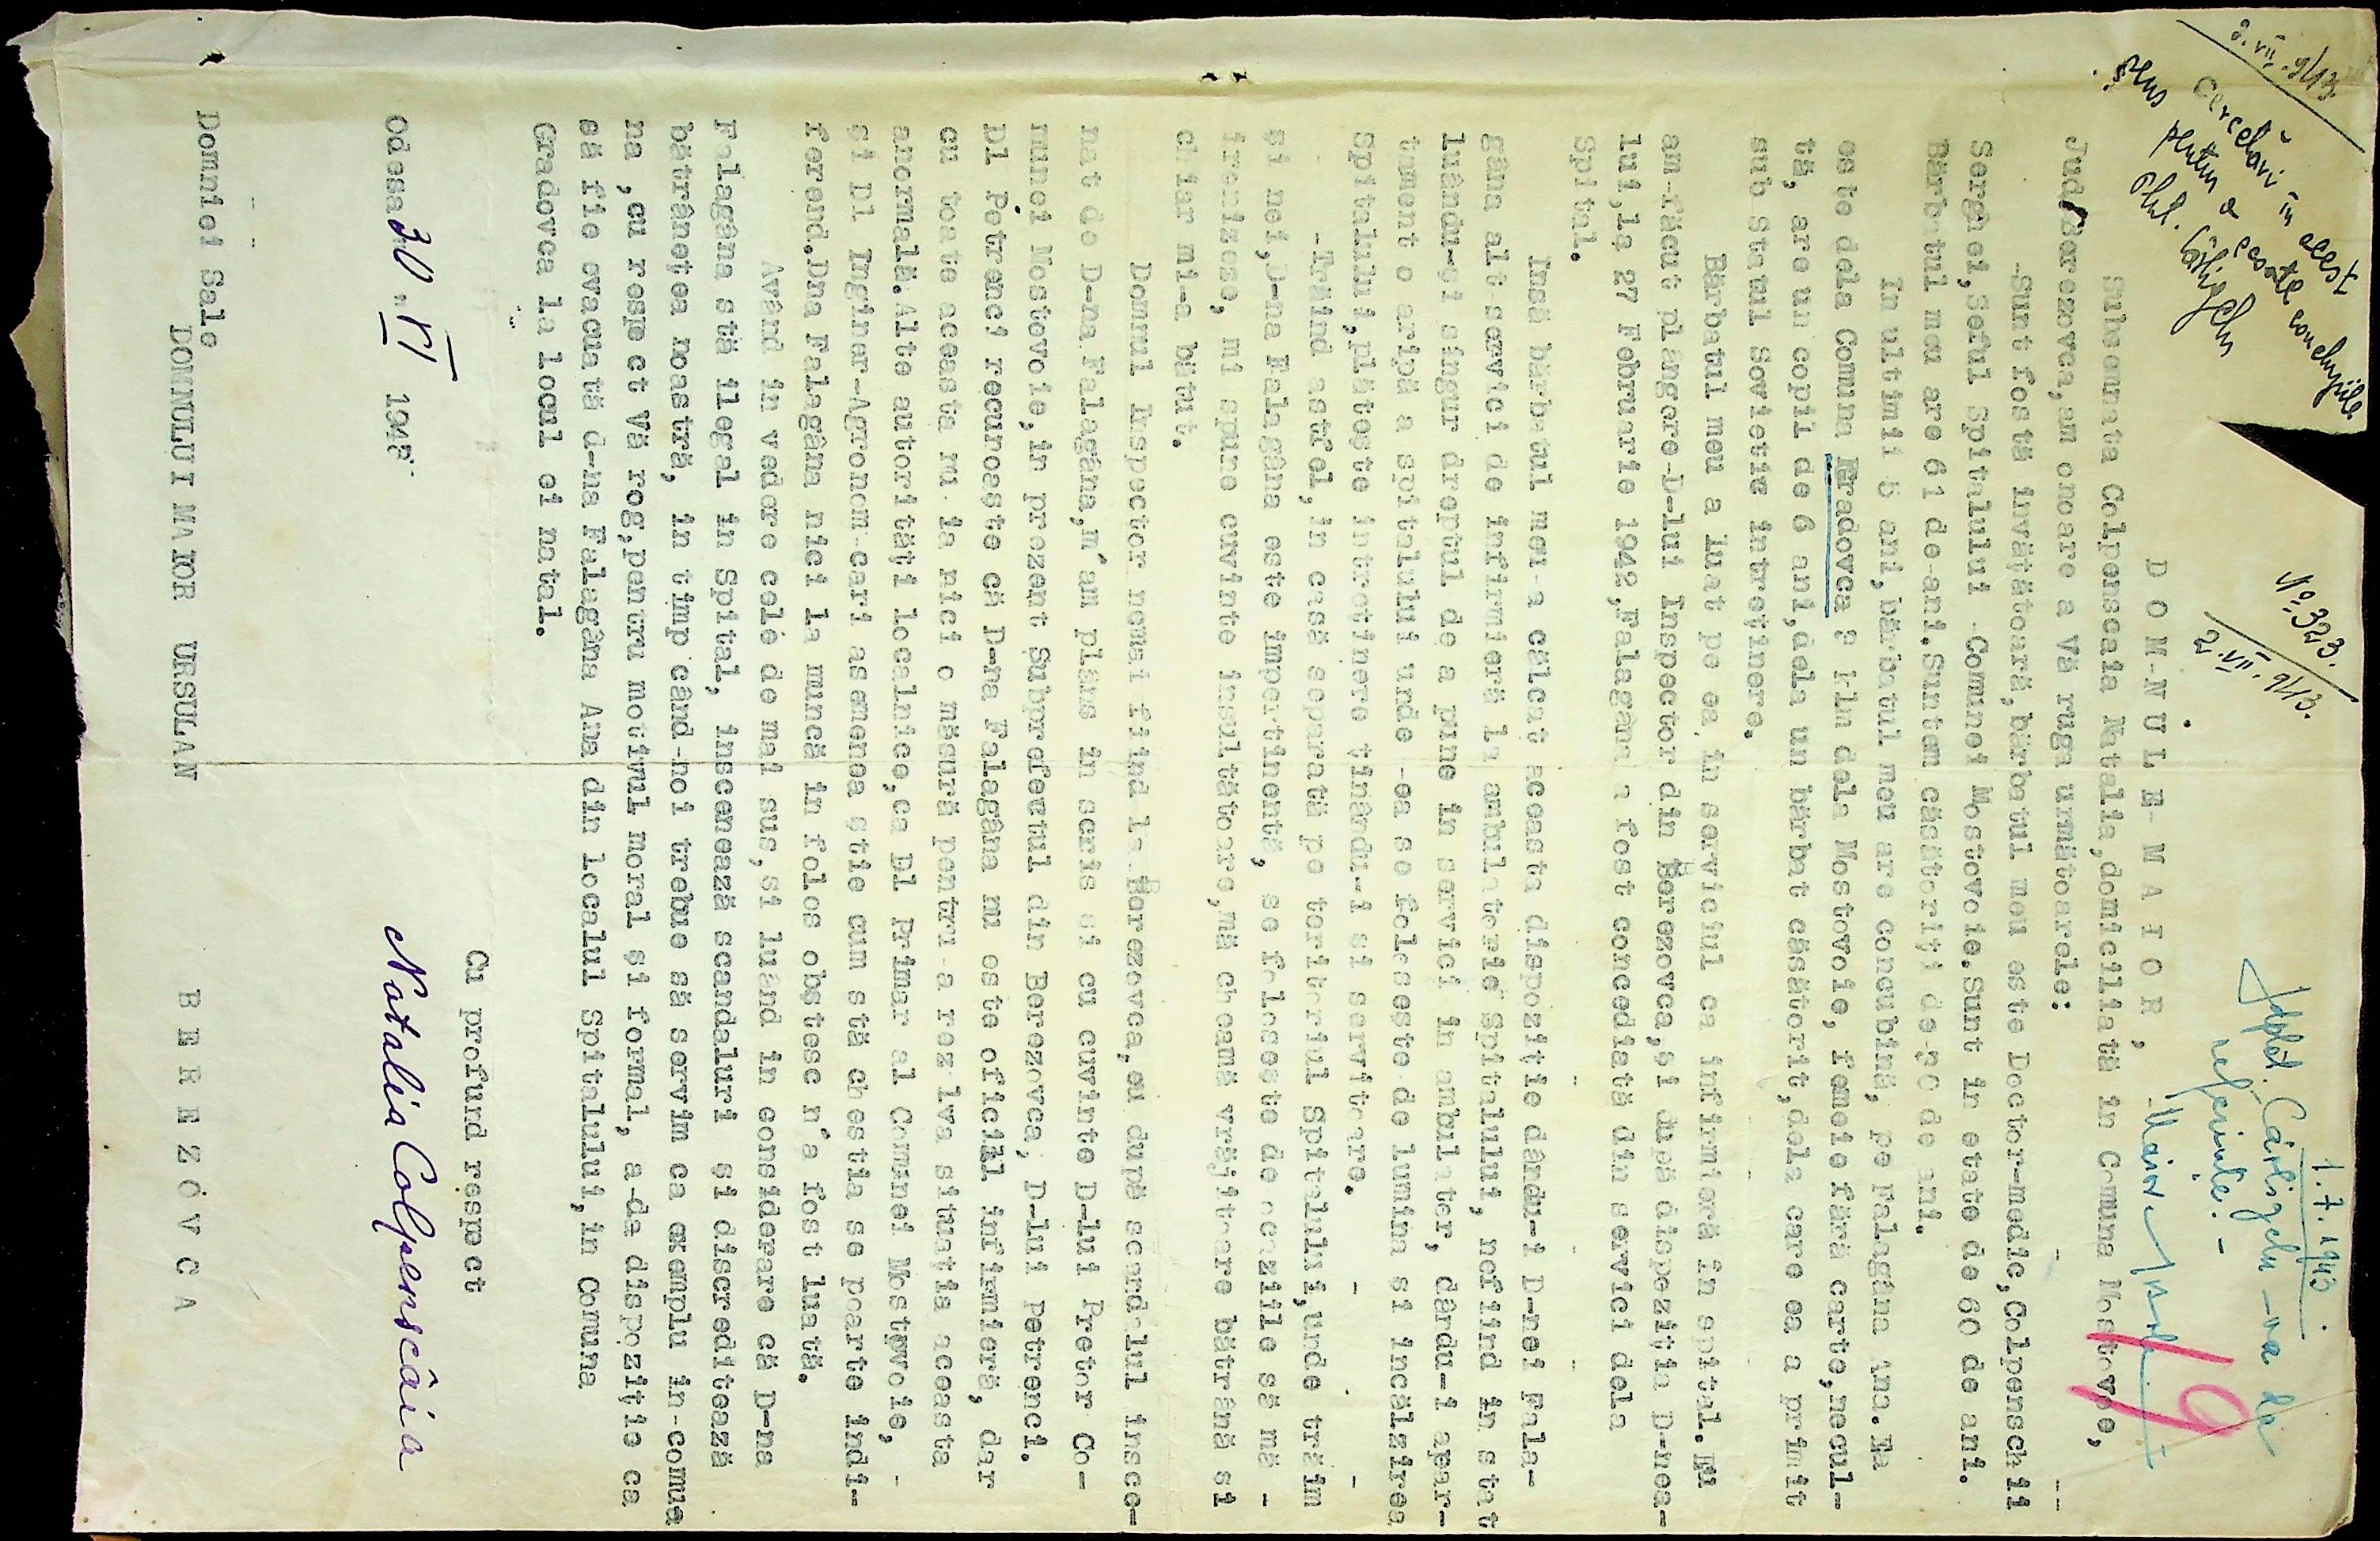 3.VII.943.
Cercetări în acest
sens pentru a
scoate concluziile
Nº 323.
2.VII.943.
1.7.1943.
Cârligelu va da
referințe.-
Maior
19
D O M-N U L E- M A I O R ,
Subsemnata Colpenscaia Natalia,domiciliată in Comuna Mostovoe,
Jud.Berezovca,am onoare a Vă ruga următoarele:
-Sunt fostă invățătoară,bărbatul meu este Doctor-medic,Colpenschii
Serghei,Seful Spitalului -Comunei Mostovoie.Sunt in etate de 60 de ani.
Bărbatul meu are 61 de-ani.Suntem căsătoriți de-20 de ani.
In ultimii 5 ani,bărbatul meu are concubină, pe Falagâna Ana.Ea
este dela Comuna Gradovca 7 klm dela Mostovoie, femeie fără carte,necul-
tă, are un copil de 6 ani,dela un bărbat căsătorit,dela care ea a primit
sub Statul Sovietic intreținere.
Bărbatul meu a luat pe ea in serviciul ca infirmieră in spital.Eu
am-făcut plângere-D-lui Inspector din Berezovca,și după dispoziția D-nea-
lui,la 27 Februarie 1942,Falagâna a fost concediată din servici dela
Spital.
Insă bărbatul meu-a călcat aceasta dispoziție dându-i D-nei Fala-
gâna alt-servici de infirmieră la ambulatorie Spitalului, nefiind in stat
luându-și singur dreptul de a pune in servici in ambulator, dându-i apar-
tament o aripă a spitalului unde -ea se folosește de lumina si incălzirea
Spitalului,plătește intretinere tinându-i si servitoare.
-Trăind astfel,in casă separată pe teritoriul Spitalului,unde trăim
și noi,D-na Falagâna este impertinentă, se folosește de ocaziile să mă -
ironizese, mi spune cuvinte insultătoare,mă cheamă vrăjitoare bătrână si
chiar mi-a bătut.
Domnul Inspector nemai fiind la Berezovca,eu după scandalul insce-
nat de D-na Falagâna,m'am plâns in scris si cu cuvinte D-lui Pretor Co-
munei Mostovoie,in prezent Subprefectul din Berezovca, D-lui Petrenci.
Dl Petrenci recunoaște că D-na Falagâna nu este oficial infirmieră, dar
cu toate aceasta nu ia nici o măsură pentru a rezolva situația aceasta
anormală.Alte autorități localnice,ca Dl Primar al Comunei Mostovoie, -
și Dl Inginer-Agronom-cari asemenea știe cum stă chestia se poarte indi-
ferend.Dna Falagâna nici la muncă in folos obștesc n'a fost luată.
Având in vedere cele de mai sus,si luând in considerare că D-na
Falagâna stă ilegal in Spital, inscenează scandaluri și discreditează
bătrânețea noastră, in timp când-noi trebue să servim ca exemplu in-comuna
na ,cu respect Vă rog,pentru motivul moral și formal, a-da dispoziție ca
să fie evacuată d-na Falagâna Ana din localul Spitalului,in Comuna
Gradovca la locul ei natal.
Cu profund respect
Odesa 30.VI 1943.
Natalia Colpenscâia
Domniei Sale
DOMNULUI MAIOR URSULAN
B E R E Z O V C A